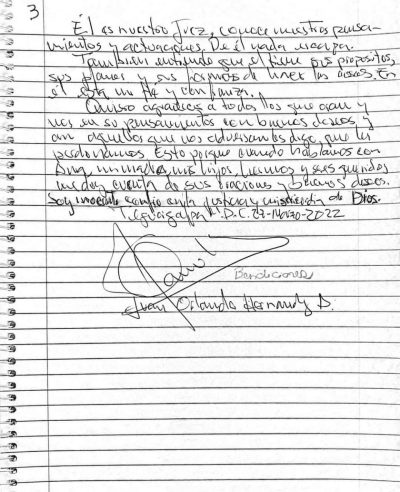 3
Él es nuestro Juez, conoce nuestros pensa-
mientos y actuaciones. De él nada escapa.
También entiendo que el tiene sus propositos,
sus planes y sus formas de hacer las cosas. En
el está mi fe y confianza.
Quiero agradecer a todos los que oran y
en su pensamientos con buenos deseos, y
aun aquellos que nos adversan les digo, que les
perdonamos. Esto porque cuando hablamos con
Ana, mi madre, mis hijos, hermanos y seres queridos
me dan cuenta de sus oraciones y buenos deseos.
Soy inocente confio en la justicia y misericordia de Dios.
Tegucigalpa M.D.C. 27-Marzo-2022
Bendiciones
Juan Orlando Hernández A.